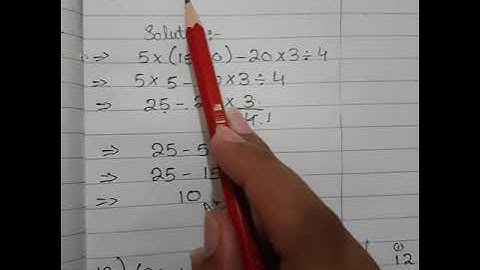 Solut :-
⇒ 5 × (15 0) - 20 × 3 ÷ 4
⇒ 5 × 5 - 0 × 3 ÷ 4
⇒ 25 - 2 × 3
4 1
⇒ 25 - 5
⇒ 25 - 15
⇒ 10
12